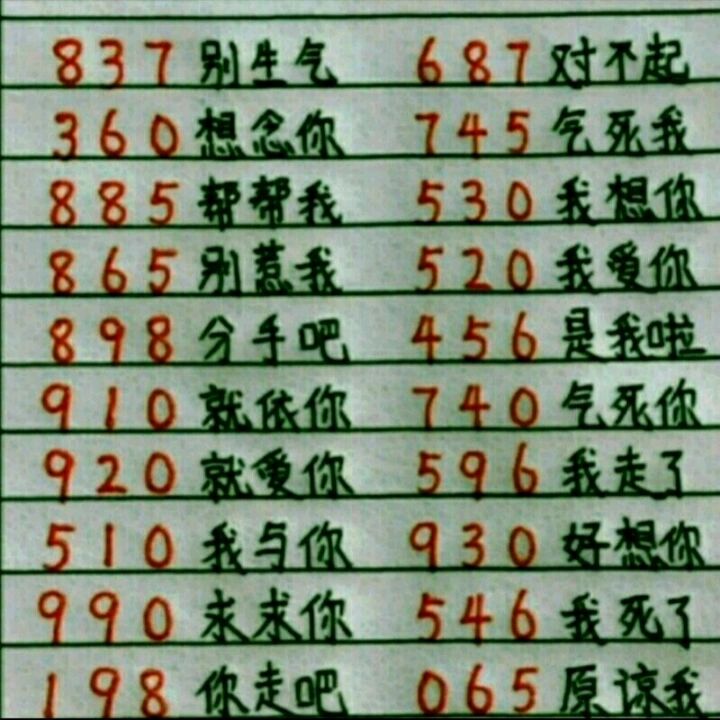 837 别生气 687 对不起
360 想念你 745 气死我
885 帮帮我 530 我想你
865 别惹我 520 我爱你
898 分手吧 456 是我啦
910 就依你 740 气死你
920 就爱你 596 我走了
510 我与你 930 好想你
990 求求你 546 我死了
198 你走吧 065 原谅我